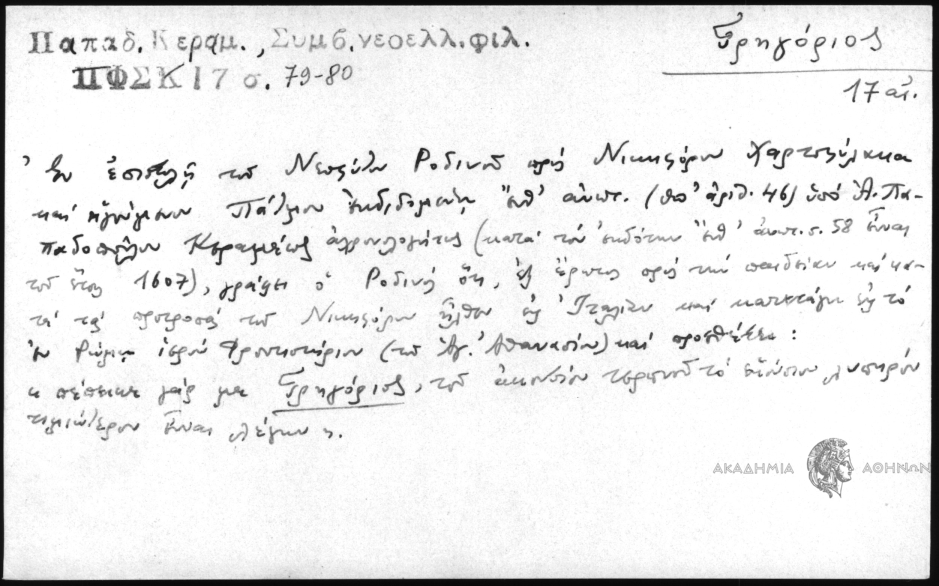 Παπαδ. Κεραμ., Συμβ. νεοελλ. φιλ.
ΠΦΣΚ 17 σ. 79-80
Γρηγόριος
17 αἰ.
Ἐν ἐπιστολῇ τοῦ Νεοφύτου Ροδινοῦ πρὸς Νικηφόρον Χαρτοφύλακα
καὶ ἡγούμενον Πάτμου ἐκδιδομένῃ ἔνθ' ἀνωτ. (ὑπ' ἀριθ. 46) ὑπὸ Ἀ. Πα-
παδοπούλου Κεραμέως ἀχρονολογήτως (κατὰ τὸν ἐκδότην ἔνθ' ἀνωτ. σ. 58 εἶναι
τοῦ ἔτους 1607), γράφει ὁ Ροδινὸς ὅτι, ἐξ ἔρωτος πρὸς τὴν παιδείαν καὶ κα-
τὰ τὰς προτροπὰς τοῦ Νικηφόρου ἦλθεν εἰς Ἰταλίαν καὶ κατετάγη εἰς τὸ
ἐν Ρώμῃ ἱερὸν Φροντιστήριον (τοῦ Ἁγ. Ἀθανασίου) καὶ προσθέτει:
« πέπεικε γάρ με Γρηγόριος, τοῦ ἀκουσίου τερπνοῦ τὸ ἑκούσιον λυπηρὸν
τιμιώτερον εἶναι λέγων ».
ΑΚΑΔΗΜΙΑ ΑΘΗΝΩΝ